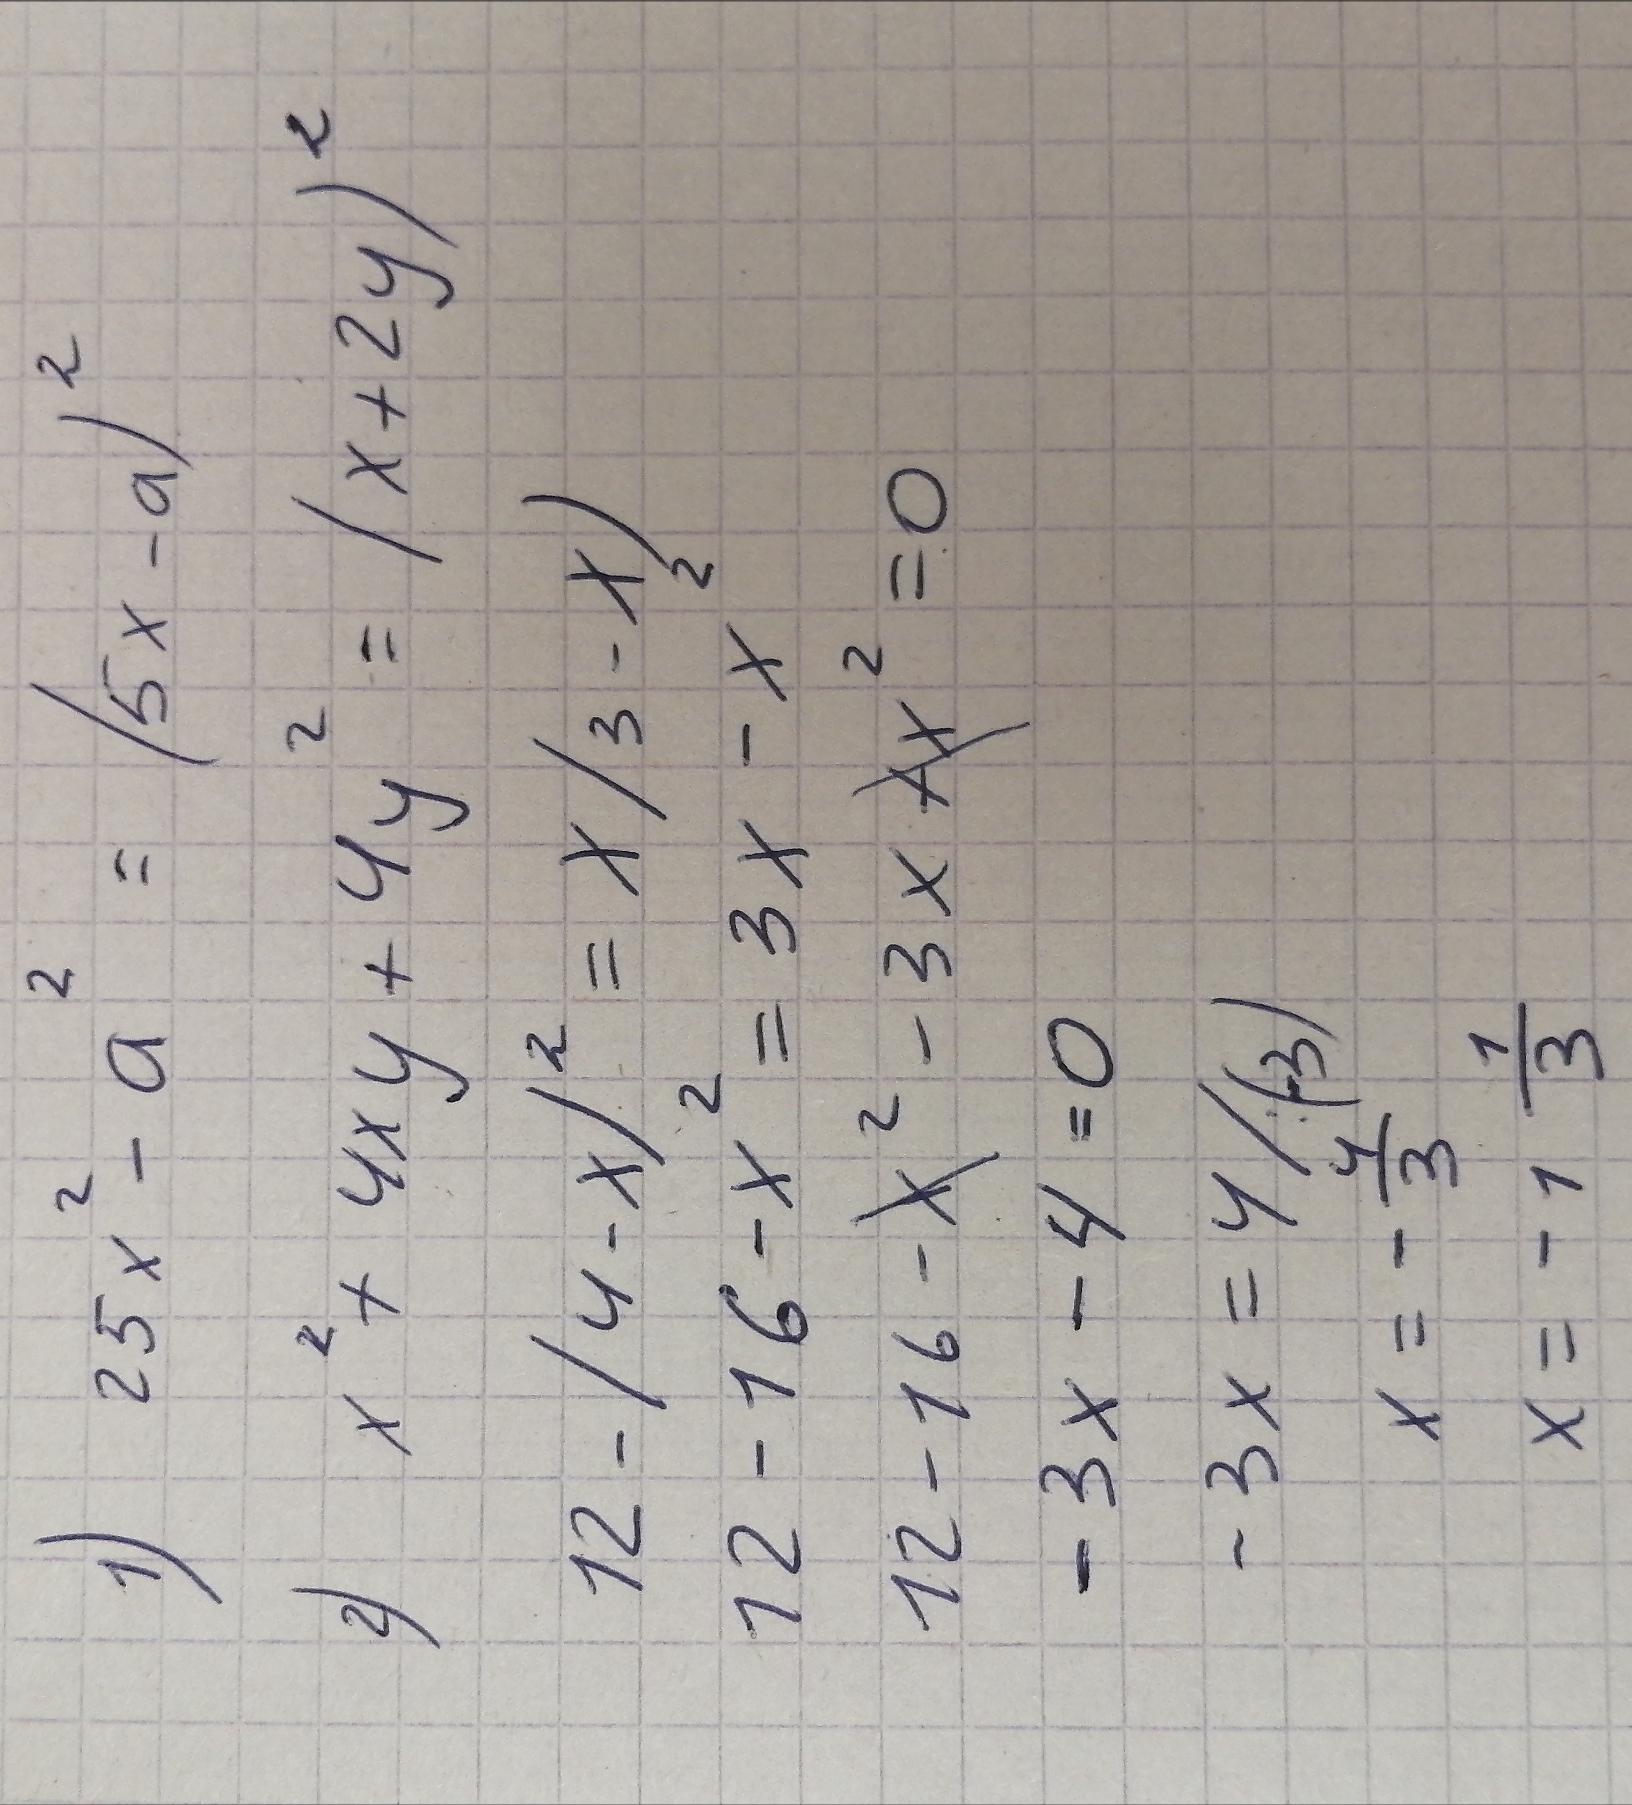 1) 25x² - a² = (5x - a)²
2) x² + 4xy + 4y² = (x + 2y)²
12 - (4 - x)² = x(3 - x)
12 - 16 - x² = 3x - x²
12 - 16 - x² - 3x x² = 0
- 3x - 4 = 0
- 3x = 4 /:(-3)
x = - 4/3
x = - 1 1/3